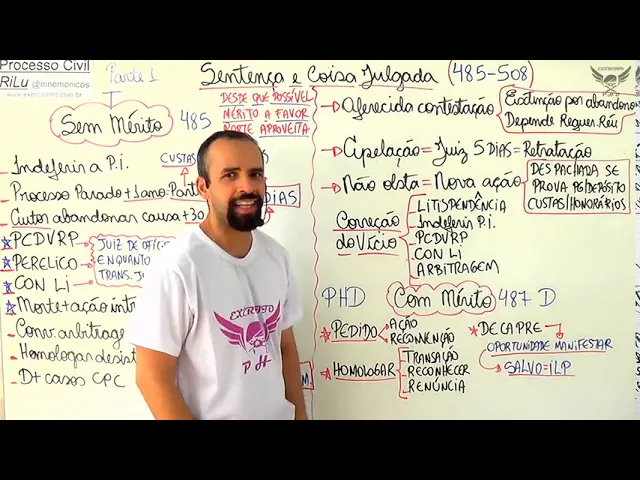 Processo Civil
RiLu @mnemonicos
www.exercitophd.com.br
Parte 1
Sentença e Coisa Julgada (485-508)
Sem Mérito 485
DESDE QUE POSSÍVEL
MÉRITO A FAVOR
PARTE APROVEITA
Indeferir a P.I.
CUSTAS
Processo Parado +1 ano:
Autor abandonar causa +30
DIAS
PCDVRP
PERELICO
CON LI
JUIZ DE OFÍCIO
ENQUANTO
TRANS.
Morte + ação
Conv. arbitragem
Homologar
D+ casos CPC
Oferecida contestação
Extinção por abandono
Depende Requer. Réu
Apelação = Juiz 5 DIAS = Retratação
Não obsta = Nova ação
DESPACHADA SE
PROVA PG/DEPÓSITO
CUSTAS/HONORÁRIOS
Correção
do Vício
LITISPENDÊNCIA
Indeferir P.I.
PCDVRP
CON LI
ARBITRAGEM
PHD
Com Mérito 487 D
PEDIDO
AÇÃO
RECONVENÇÃO
HOMOLOGAR
TRANSAÇÃO
RECONHECER
RENÚNCIA
DECAPRE
OPORTUNIDADE MANIFESTAR
SALVO = ILP
EXÉRCITO
PH